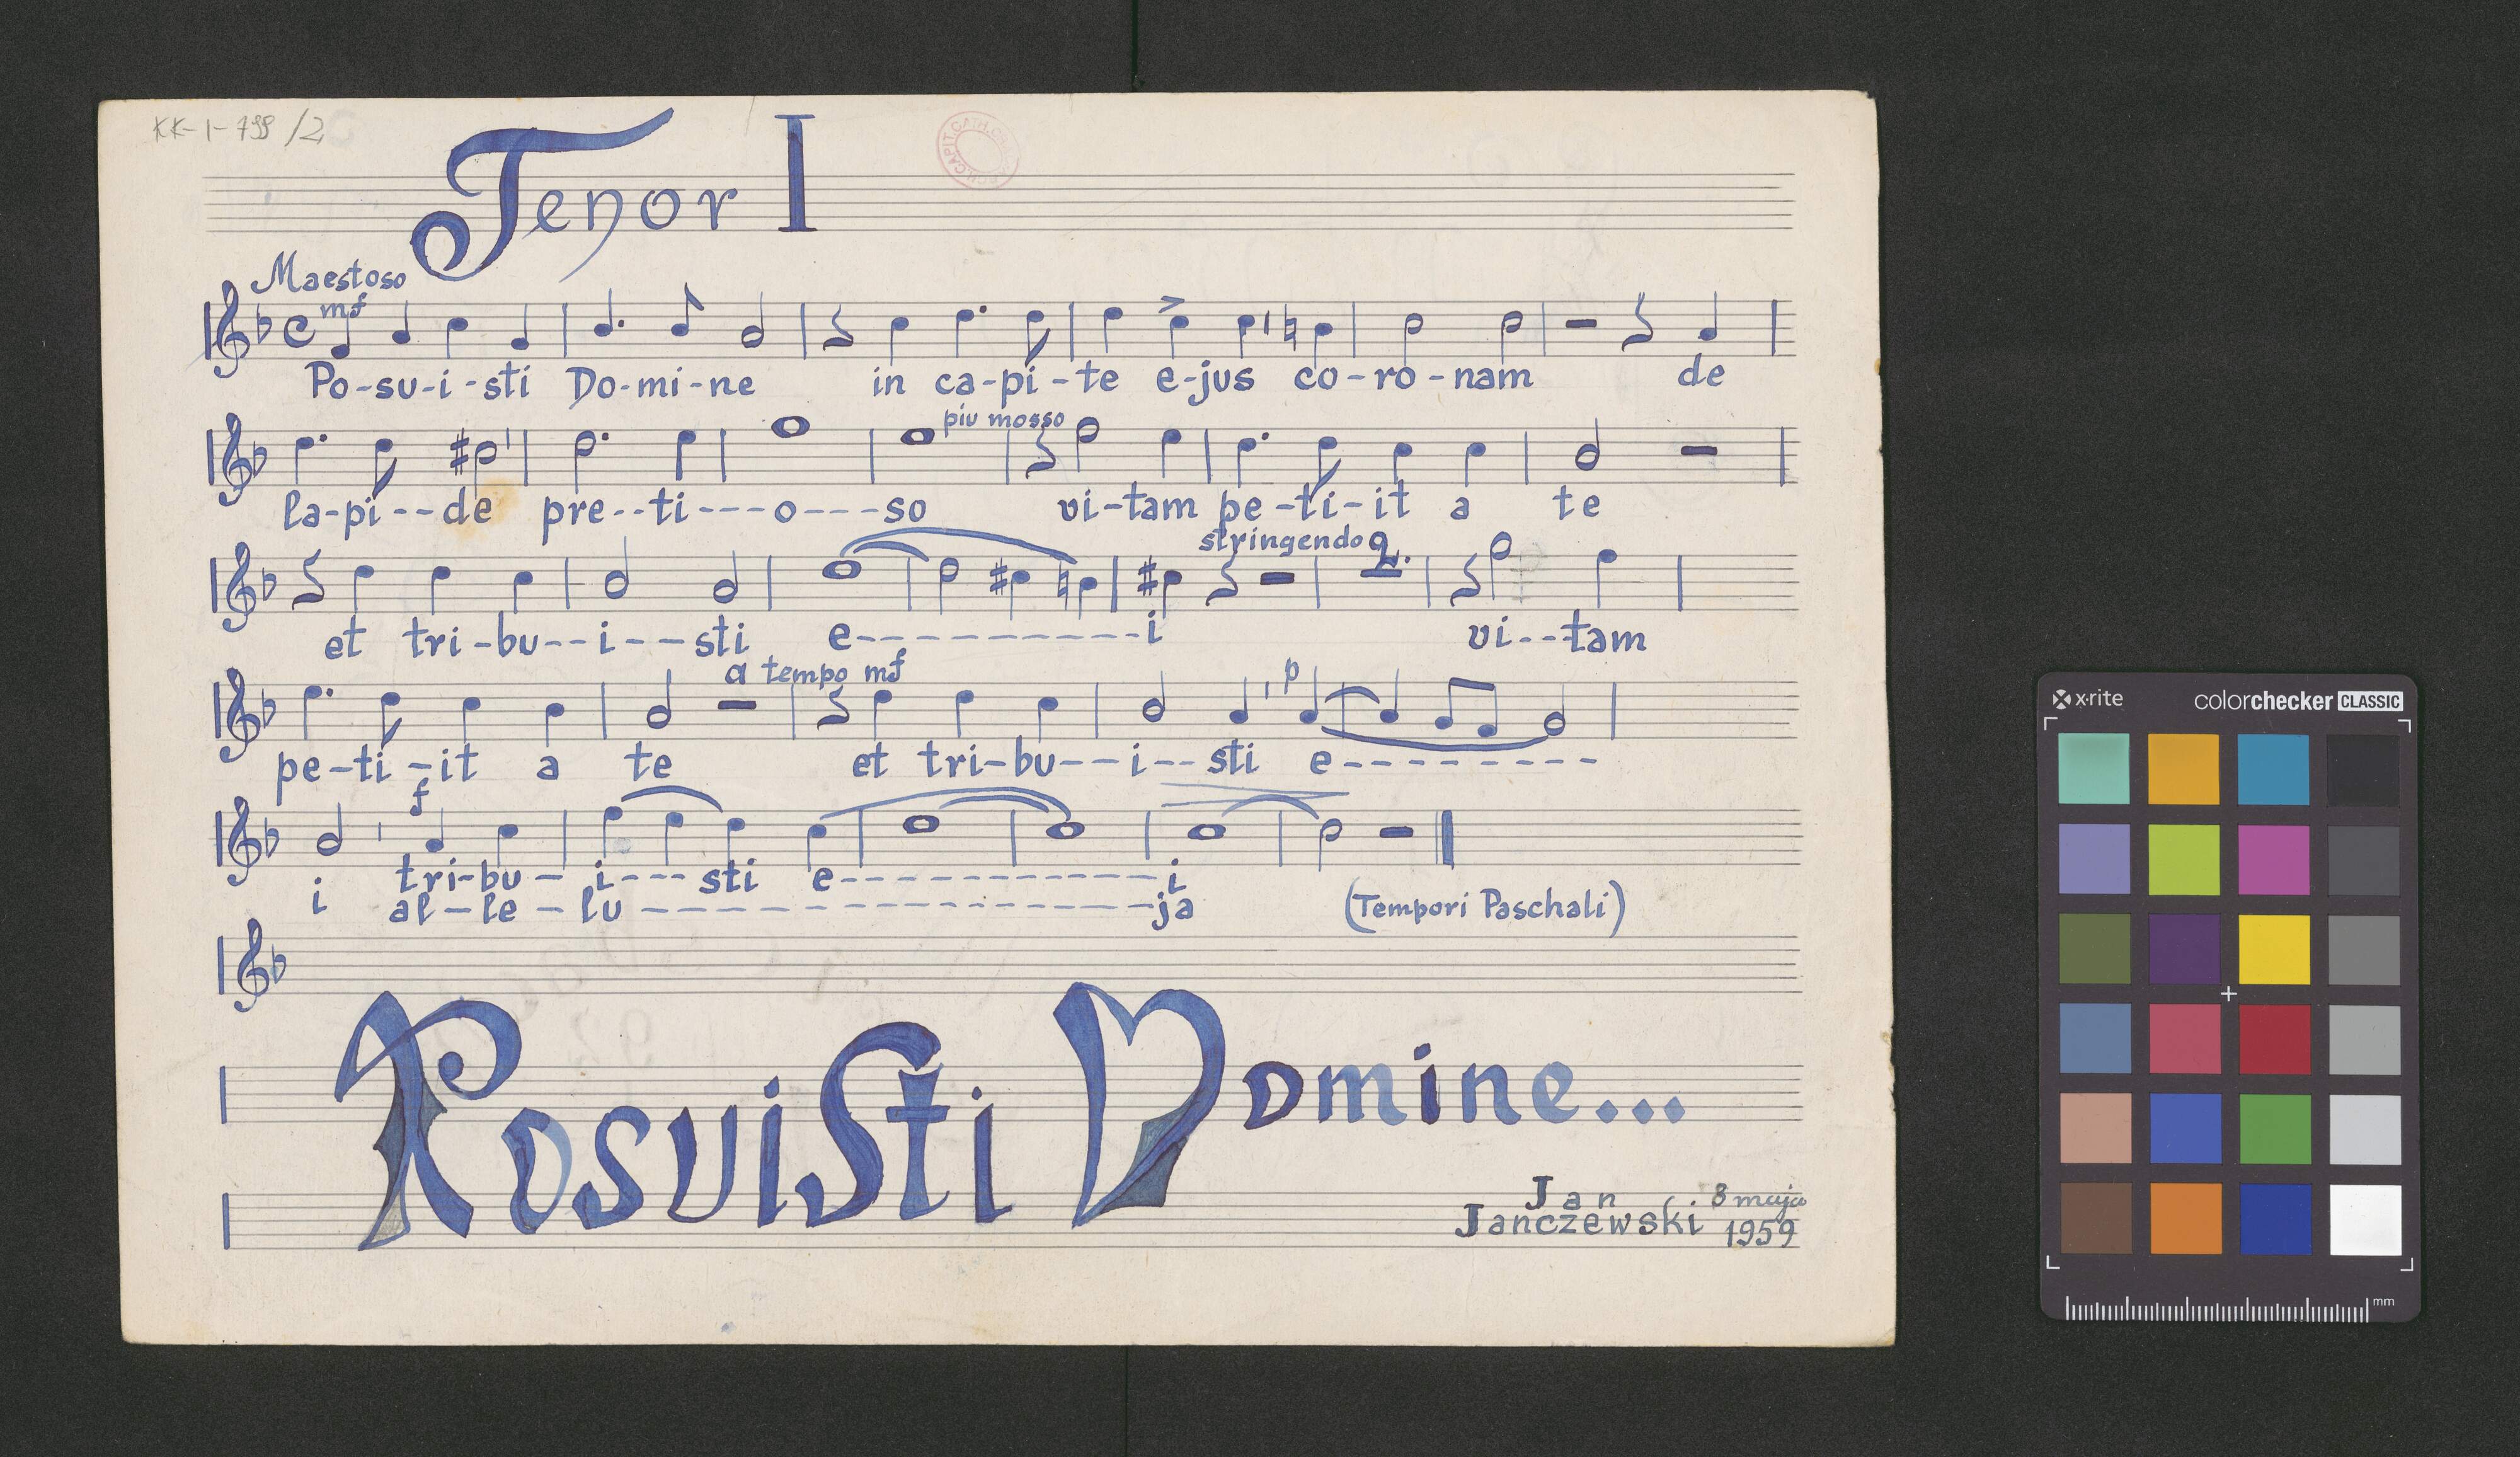 KK-I-798/2
Tenor I
Maestoso
mf
Po-su-i-sti Do-mi-ne in ca-pi-te e-jus co-ro-nam de
piu mosso
la-pi--de pre--ti---o---so vi-tam pe-ti-it a te
stringendo 2
et tri-bu--i---sti e----------i vi--tam
a tempo mf p
pe-ti-it a te et tri-bu--i--sti e---------
f
i tri-bu- i---sti e------------i
al-le-lu ----------------ja (Tempori Paschali)
Posuisti Domine...
Jan
Janczewski 8 maja
1959
x-rite colorchecker CLASSIC
mm